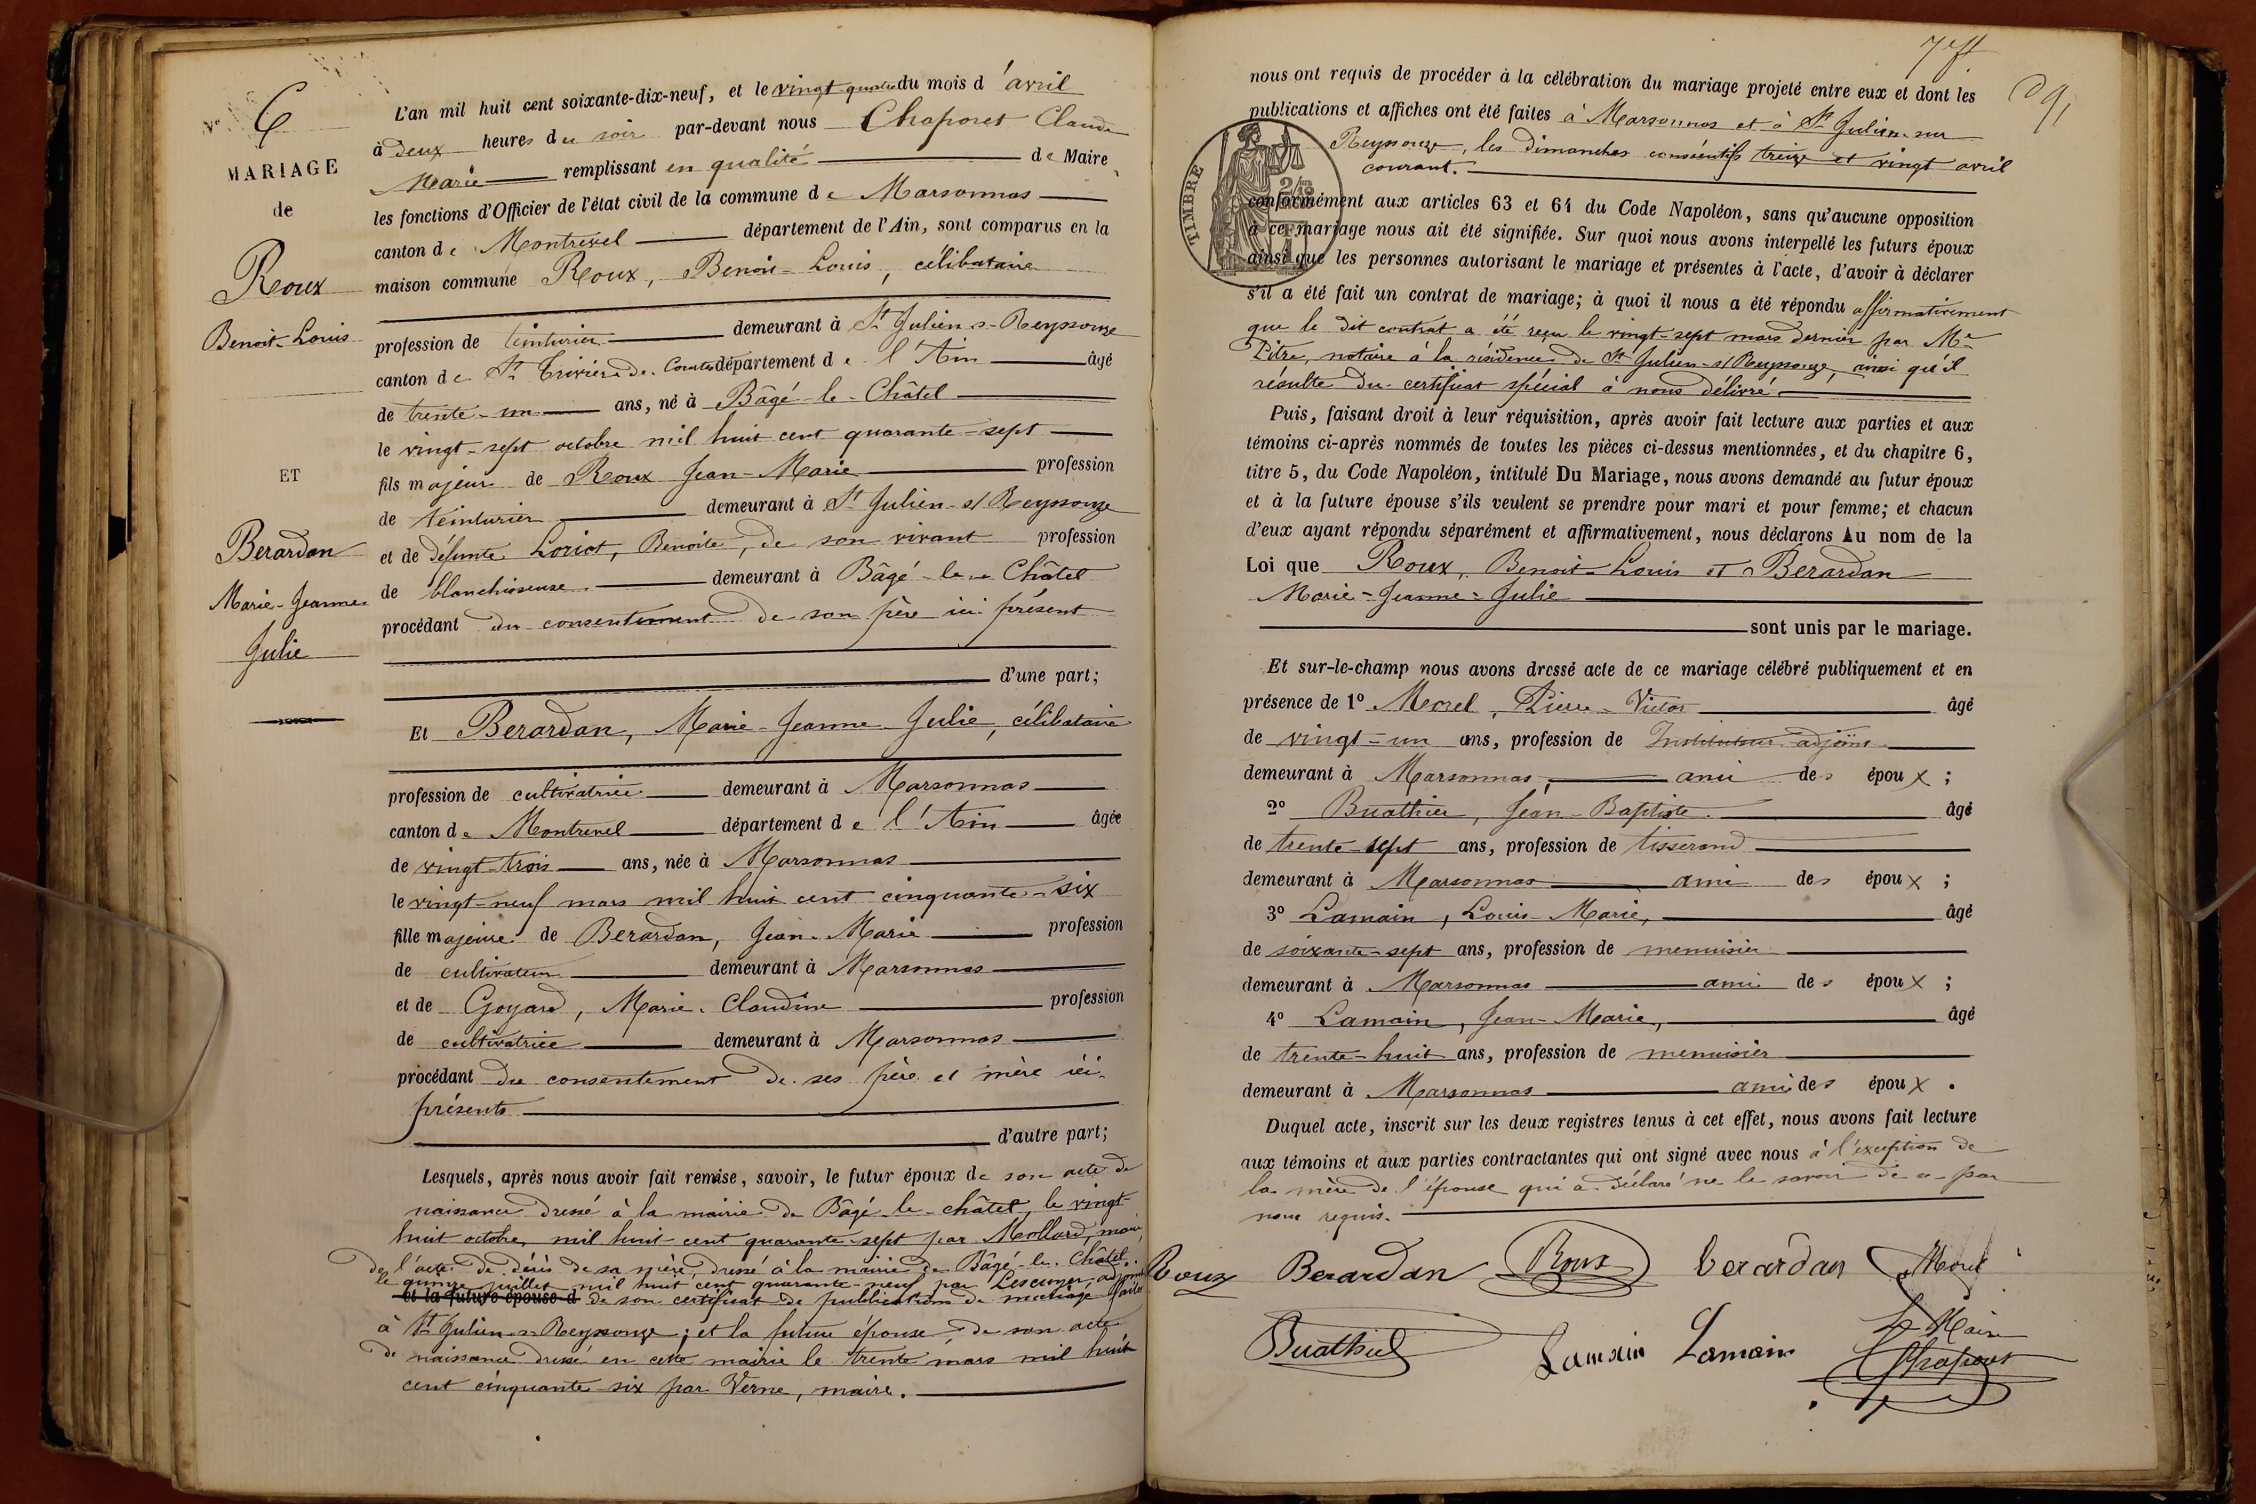 N° 6
MARIAGE
de
Roux
Benoit-Louis
ET
Berardan
Marie-Jeanne
Julie
L'an mil huit cent soixante-dix-neuf, et le vingt quatre du mois d'avril
à deux heures du soir par-devant nous Chaponet Claude
Marie remplissant en qualité de Maire
les fonctions d'Officier de l'état civil de la commune de Marsonnas
canton de Montrevel département de l'Ain, sont comparus en la
maison commune Roux, Benoit-Louis, célibataire
profession de teinturier demeurant à St Julien-s-Reyssouze
canton de St Trivier-de-Courtes département de l'Ain âgé
de trente-un ans, né à Bâgé-le-Châtel
le vingt-sept octobre mil huit cent quarante-sept
fils majeur de Roux Jean-Marie profession
de teinturier demeurant à St Julien-s/Reyssouze
et de défunte Loriot, Benoite, de son vivant profession
de blanchisseuse demeurant à Bâgé-le-Châtel
procédant du consentement de son père ici présent
d'une part;
Et Berardan, Marie-Jeanne-Julie, célibataire
profession de cultivatrice demeurant à Marsonnas
canton de Montrevel département de l'Ain âgée
de vingt-trois ans, née à Marsonnas
le vingt-neuf mars mil huit cent cinquante-six
fille majeure de Berardan, Jean-Marie profession
de cultivateur demeurant à Marsonnas
et de Goyard, Marie-Claudine profession
de cultivatrice demeurant à Marsonnas
procédant du consentement de ses père et mère ici
présents
d'autre part;
Lesquels, après nous avoir fait remise, savoir, le futur époux de son acte de
naissance dressé à la mairie de Bâgé-le-châtel, le vingt
huit octobre mil huit cent quarante-sept par Mollard, maire,
de l'acte de décès de sa mère dressé à la mairie de Bâgé-le-Châtel
le quinze juillet mil huit cent quarante-neuf par Lescuyer, adjoint
et la future épouse d de son certificat de publications de mariage faites
à St Julien-s-Reyssouze; et la future épouse, de son acte
de naissance dressé en cette mairie le trente mars mil huit
cent cinquante-six par Verne, maire.
nous ont requis de procéder à la célébration du mariage projeté entre eux et dont les
publications et affiches ont été faites à Marsonnas et à St Julien-sur
Reyssouze, les dimanches consécutifs treize et vingt avril
courant.
TIMBRE
conformément aux articles 63 et 64 du Code Napoléon, sans qu'aucune opposition
à ce mariage nous ait été signifiée. Sur quoi nous avons interpellé les futurs époux
ainsi que les personnes autorisant le mariage et présentes à l'acte, d'avoir à déclarer
s'il a été fait un contrat de mariage; à quoi il nous a été répondu affirmativement
que le dit contrat a été reçu le vingt-sept mars dernier par Me
Pitre, notaire à la résidence de St Julien-s/Reyssouze, ainsi qu'il
résulte du certificat spécial à nous délivré
Puis, faisant droit à leur réquisition, après avoir fait lecture aux parties et aux
témoins ci-après nommés de toutes les pièces ci-dessus mentionnées, et du chapitre 6,
titre 5, du Code Napoléon, intitulé Du Mariage, nous avons demandé au futur époux
et à la future épouse s'ils veulent se prendre pour mari et pour femme; et chacun
d'eux ayant répondu séparément et affirmativement, nous déclarons Au nom de la
Loi que Roux, Benoit-Louis et Berardan
Marie-Jeanne-Julie
sont unis par le mariage.
Et sur-le-champ nous avons dressé acte de ce mariage célébré publiquement et en
présence de 1° Morel, Pierre-Victor âgé
de vingt-un ans, profession de Instituteur-adjoint
demeurant à Marsonnas, ami des époux;
2° Buathier, Jean-Baptiste âgé
de trente-sept ans, profession de tisserand
demeurant à Marsonnas ami des époux;
3° Lamain, Louis-Marie, âgé
de soixante-sept ans, profession de menuisier
demeurant à Marsonnas ami des époux;
4° Lamain, Jean-Marie, âgé
de trente-huit ans, profession de menuisier
demeurant à Marsonnas ami des époux.
Duquel acte, inscrit sur les deux registres tenus à cet effet, nous avons fait lecture
aux témoins et aux parties contractantes qui ont signé avec nous à l'exception de
la mère de l'épouse qui a déclaré ne le savoir de ce par
nous requis.
Roux Berardan Roux berardan Morel
Buathier Lamain Lamain Le Maire
Chaponet